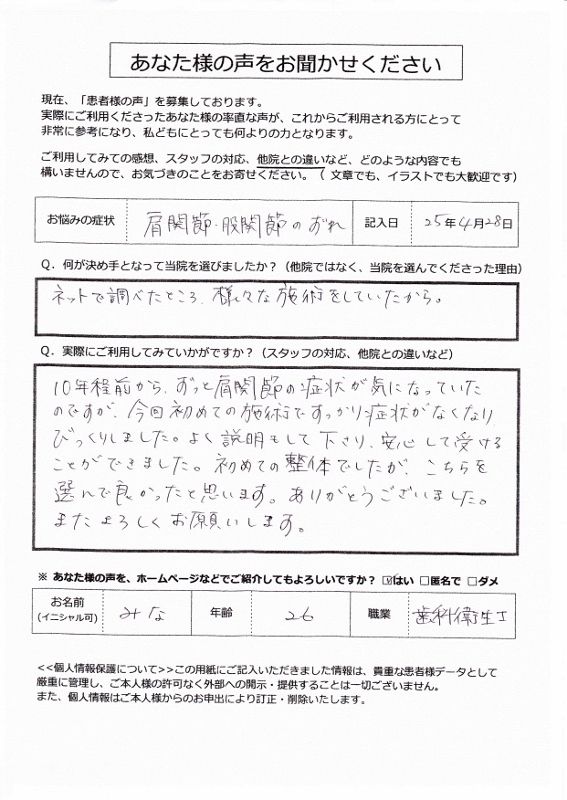 あなた様の声をお聞かせください
現在、「患者様の声」を募集しております。
実際にご利用くださったあなた様の率直な声が、これからご利用される方にとって
非常に参考になり、私どもにとっても何よりの力となります。
ご利用してみての感想、スタッフの対応、他院との違いなど、どのような内容でも
構いませんので、お気づきのことをお寄せください。（ 文章でも、イラストでも大歓迎です）
お悩みの症状 肩関節・股関節のずれ 記入日 25年4月28日
Q．何が決め手となって当院を選びましたか？（他院ではなく、当院を選んでくださった理由）
ネットで調べたところ、様々な施術をしていたから。
Q．実際にご利用してみていかがですか？（スタッフの対応、他院との違いなど）
10年程前から、ずっと肩関節の症状が気になっていた
のですが、今回初めての施術ですっかり症状がなくなり
びっくりしました。よく説明もして下さり、安心して受ける
ことができました。初めての整体でしたが、こちらを
選んで良かったと思います。ありがとうございました。
またよろしくお願いします。
※ あなた様の声を、ホームページなどでご紹介してもよろしいですか？ ☑はい □匿名で □ダメ
お名前 (イニシャル可) みな 年齢 26 職業 歯科衛生士
<<個人情報保護について>>この用紙にご記入いただきました情報は、貴重な患者様データとして
厳重に管理し、ご本人様の許可なく外部への開示・提供することは一切ございません。
また、個人情報はご本人様からのお申出により訂正・削除いたします。